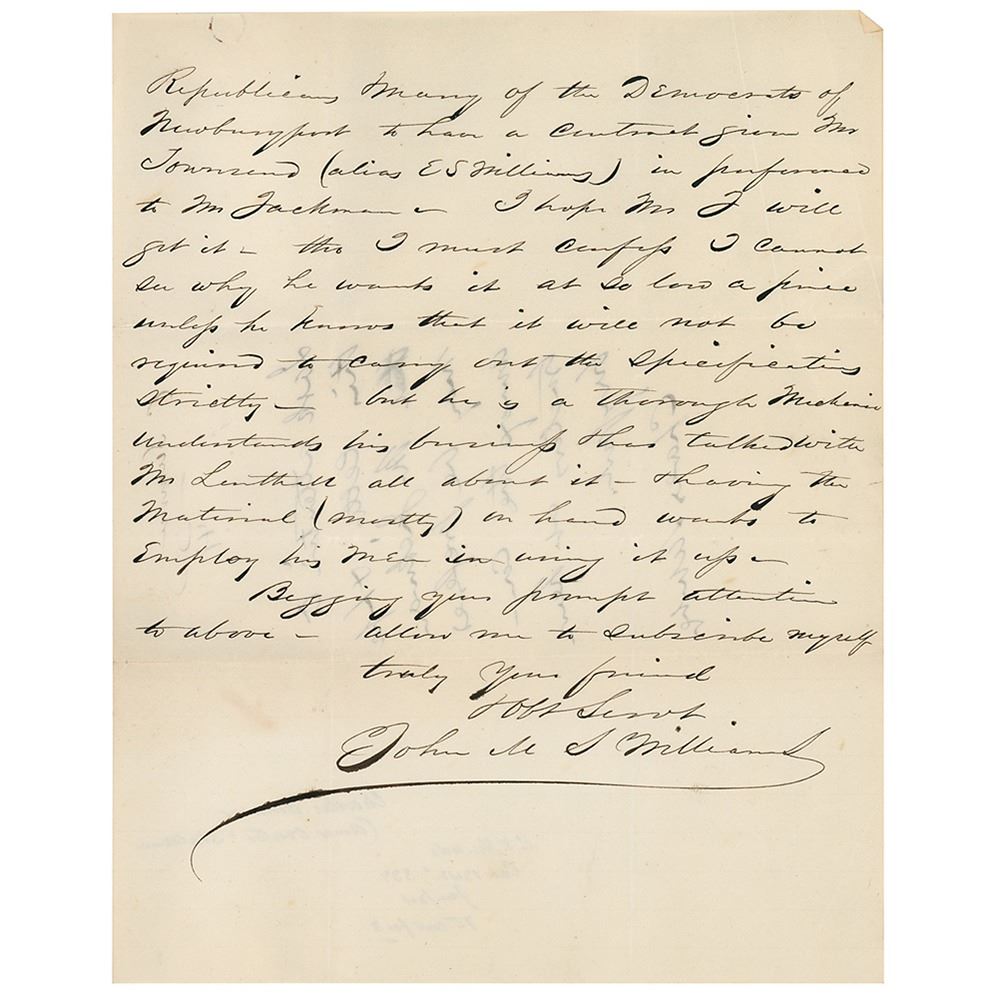 Republicans & many of the Democrats of
Newburyport to have a contract given Mr
Townsend (alias E S Williams) in preference
to Mr Jackman – I hope Mr J will
get it – tho I must confess I cannot
see why he wants it at so low a price
unless he knows that it will not be
required to carry out the specifications
strictly – but he is a thorough Mechanic
understands his business & has talked with
Mr Lenthall all about it – & having the
Material (mostly) on hand wants to
Employ his Men in using it up –
Begging your prompt attention
to above – allow me to subscribe myself
truly your friend
& Obt Servt
John M S Williams